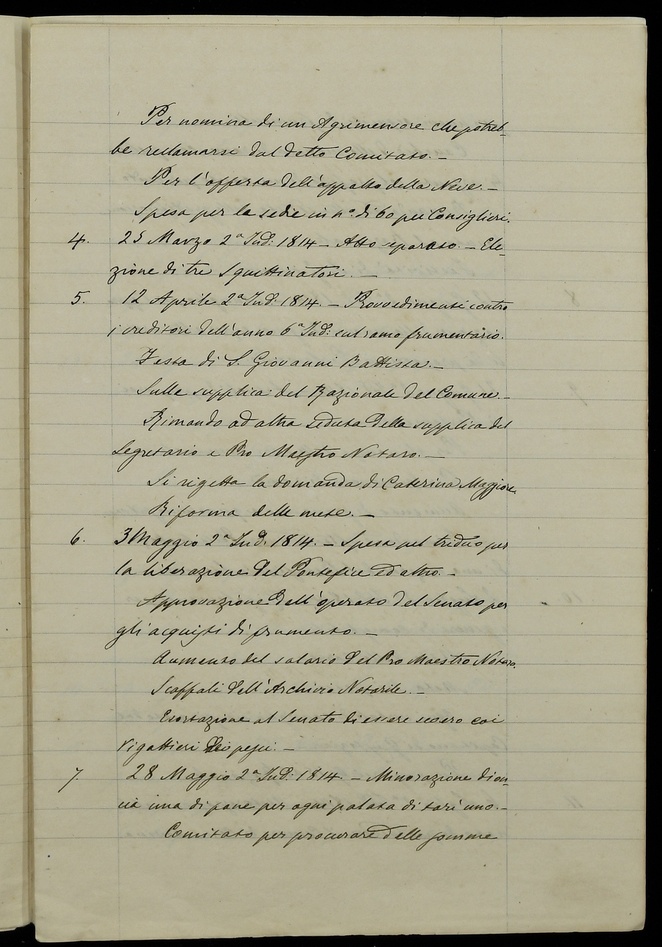 Per nomina di un Agrimensore che potreb-
be reclamarsi dal detto Comitato. -
Per l'offerta dell'appalto della Neve. -
Spesa per le sedie in n.° di 60 pei Consiglieri.
4. 23 Marzo 2ª Ind: 1814 - Atto separato. - Ele-
zione di tre Squittinatori. -
5. 12 Aprile 2ª Ind: 1814. - Provvedimenti contro
i creditori dell'anno 6ª Ind: sul ramo frumentario.
Festa di S. Giovanni Battista. -
Sulle supplica del Razionale del Comune. -
Rimando ad altra seduta della supplica del
Segretario e Pro Maestro Notaro. -
Si rigetta la domanda di Caterina Maggiore.
Riforma delle mete. -
6. 3 Maggio 2ª Ind: 1814. - Spesa pel triduo per
la liberazione del Pontefice ed altro. -
Approvazione dell'operato del Senato per
gli acquisti di frumento. -
Aumento del salario del Pro Maestro Notaro.
Scaffali dell'Archivio Notarile. -
Esortazione al Senato di essere severo coi
rigattieri di pesci. -
7. 28 Maggio 2ª Ind: 1814. - Minorazione d'on-
cia una di pane per ogni palata di tarì uno. -
Comitato per procurare delle somme